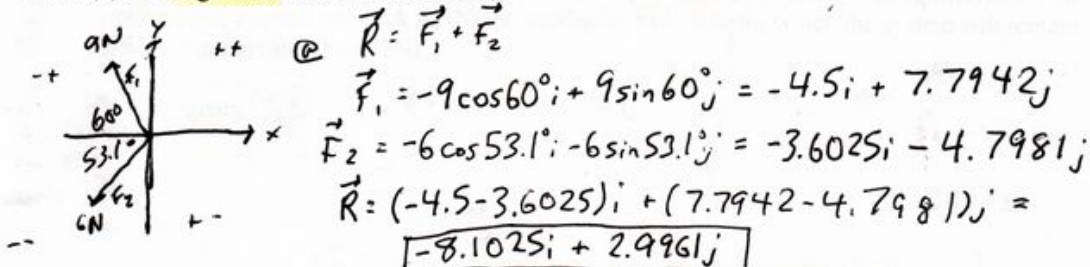 Y
9N
++
-+
F₁
60°
x
53.1°
F₂
6N
+-
--
@ R⃗ = F⃗₁ + F⃗₂
F⃗₁ = -9cos60°i + 9sin60°j = -4.5i + 7.7942j
F⃗₂ = -6cos53.1°i - 6sin53.1°j = -3.6025i - 4.7981j
R⃗ = (-4.5-3.6025)i + (7.7942-4.7981)j =
-8.1025i + 2.9961j